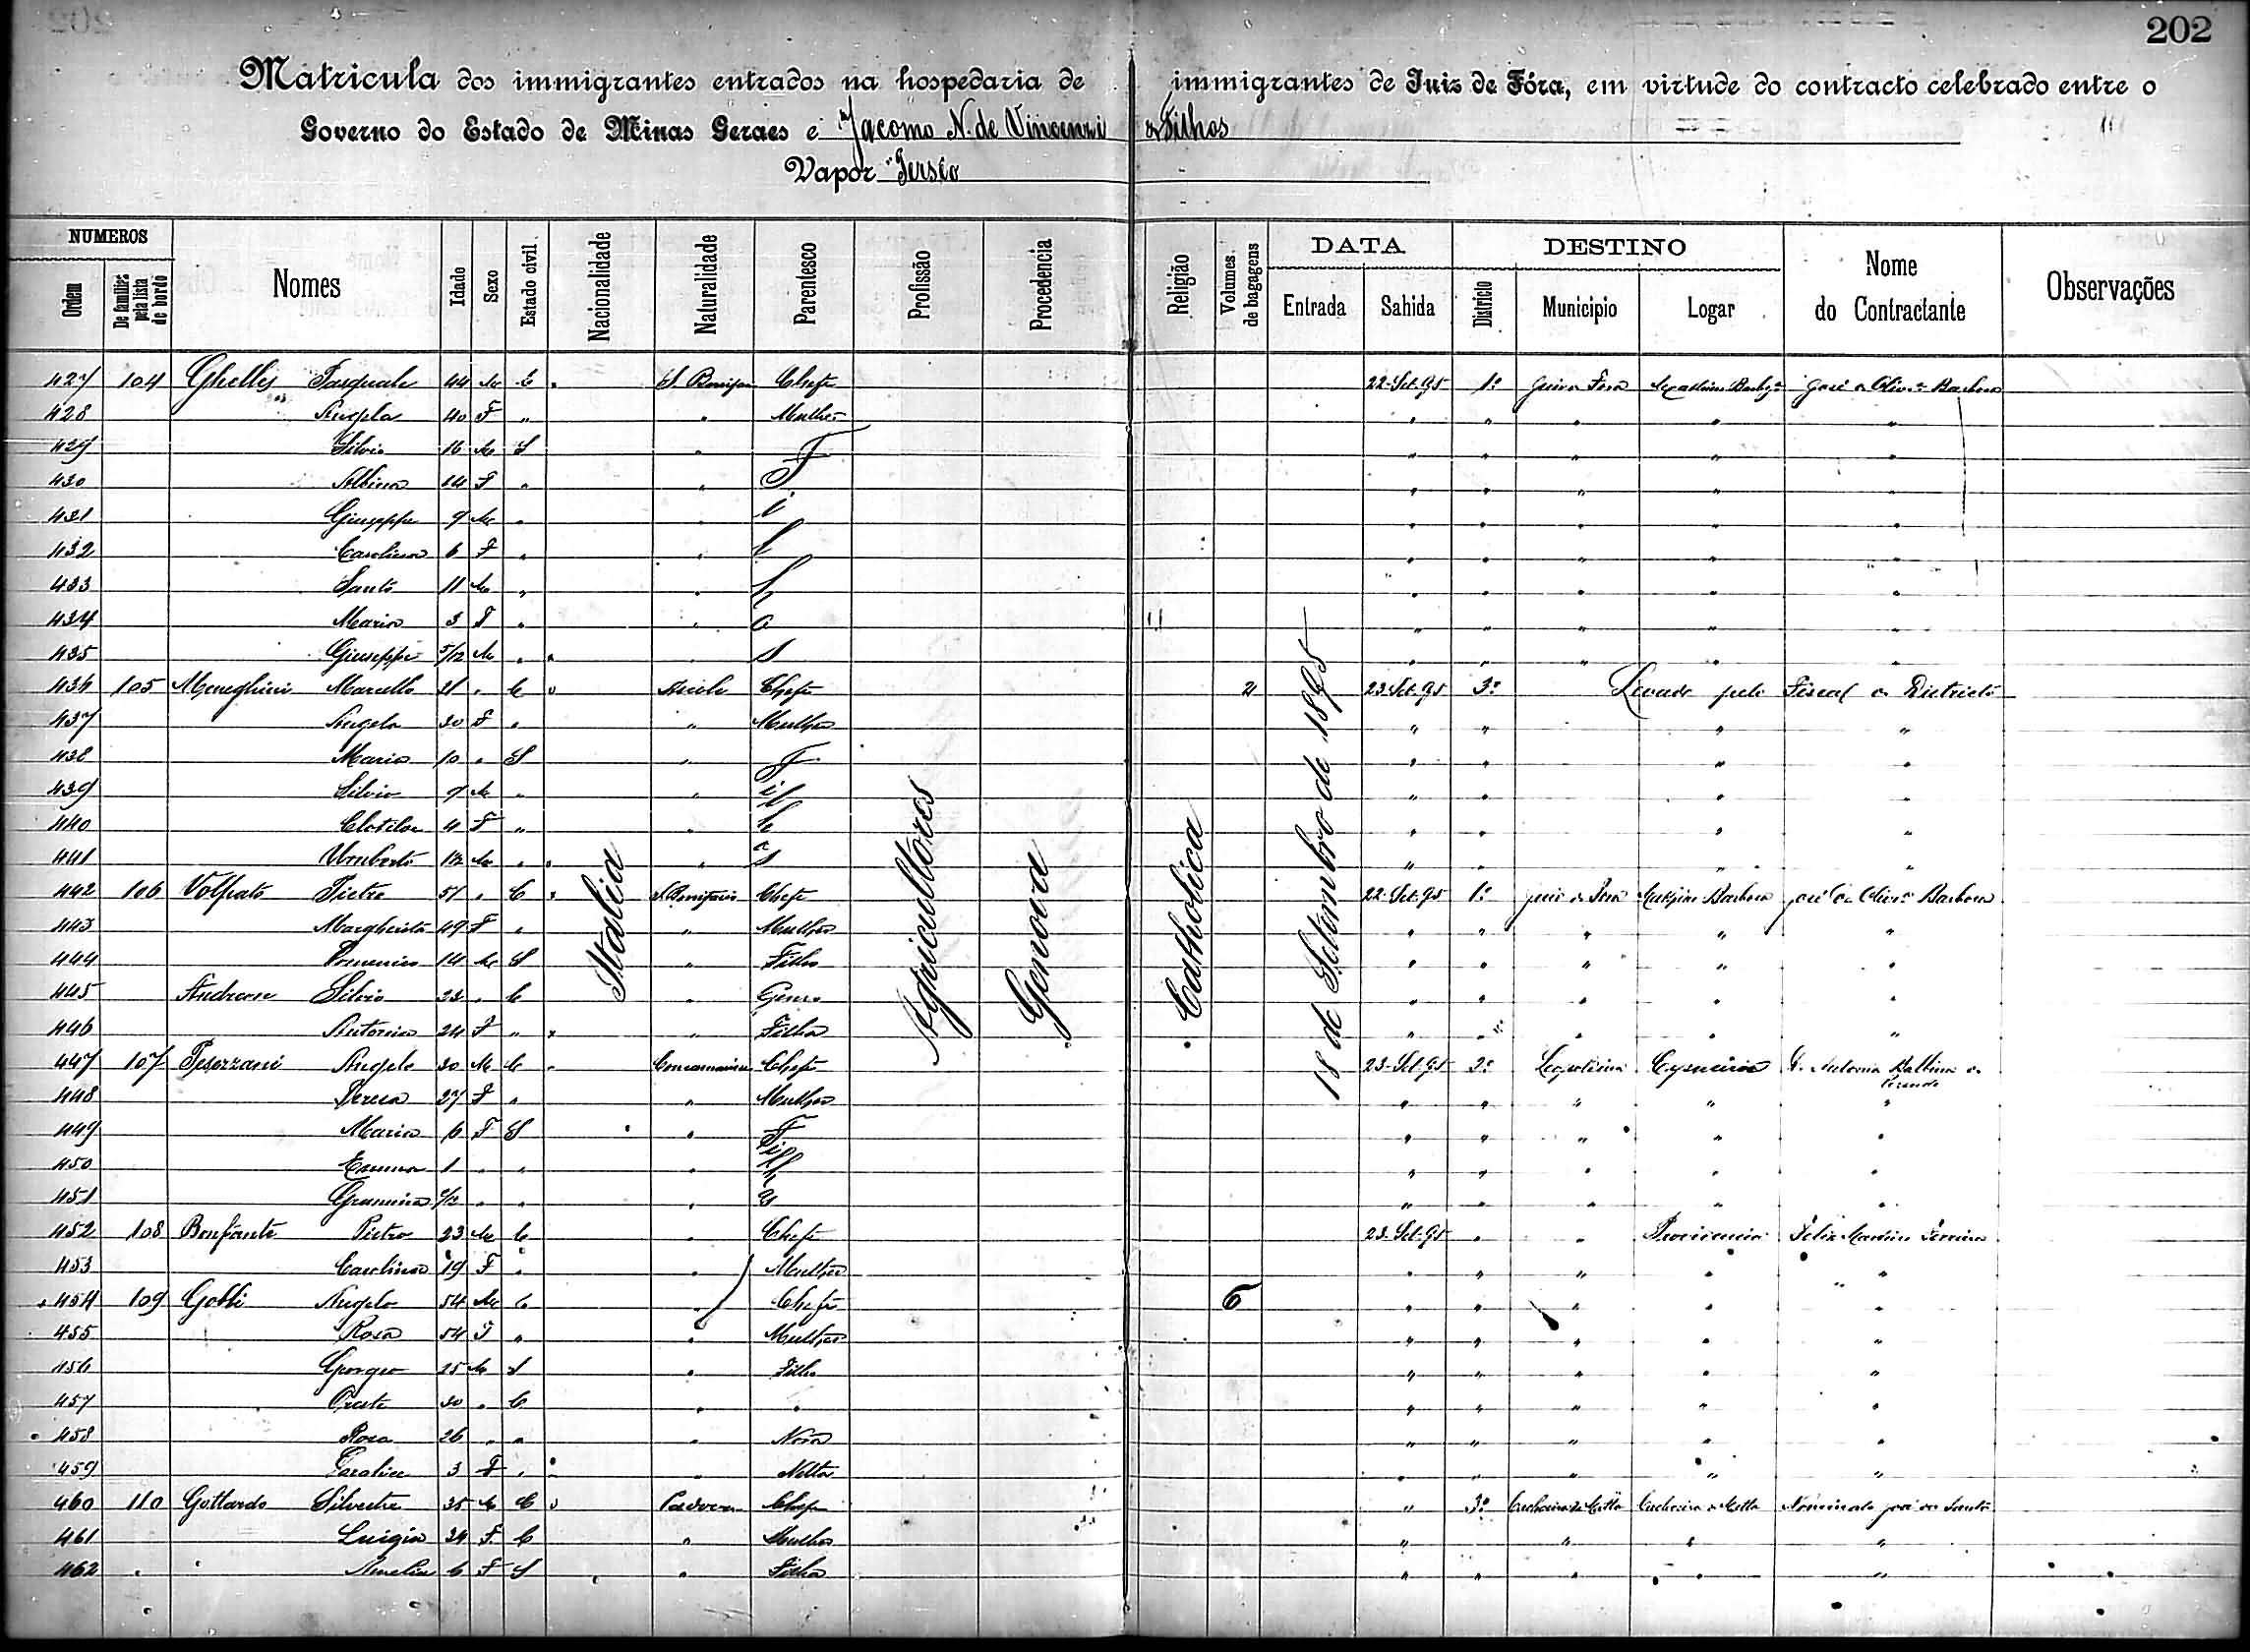 202
Matricula dos immigrantes entrados na hospedaria de immigrantes de Juiz de Fóra, em virtude do contracto celebrado entre o
Governo do Estado de Minas Geraes e Jacomo N. de Vincenzi & Filhos
Vapor Perséo
NUMEROS DATA DESTINO
Ordem De familia pela lista de bordo Nomes Idade Sexo Estado civil Nacionalidade Naturalidade Parentesco Profissão Procedencia Religião Volumes de bagagens Entrada Sahida Districto Municipio Logar Nome do Contractante Observações
Italia Agricultores Genova Catholica 18 de Setembro de 1895
427 104 Pasquale 44 M C Chefe 22-Set-95 1º
428 Angela 40 F " " Mulher " " " " "
429 Silvio 16 M S " F " " " " "
430 Albina 14 F " " i " " " " "
431 Giuseppe 9 M " " l " " " " "
432 Carolina 6 F " " h " " " " "
433 Santo 11 M " " " " " " "
434 Maria 3 F " " o " " " " "
435 Giuseppe 5/12 M " " s " " " " "
436 105 Meneghini Marcello 31 " C Chefe 23-Set-95 3º Levado pelo Fiscal do Districto
437 Angela 30 F " " Mulher " " " "
438 Maria 10 " S " F " " " "
439 Silvio 9 M " " i l " " " "
440 Clotilde 4 F " " h " " " "
441 Umberto M " " o s " " " "
442 106 Volpato Pietro 51 " C S. Bonifacio Chefe 22-Set-95 1º Juiz de Fora Barbosa José de Olivª Barbosa
443 Margherita 49 F " " Mulher " " " " "
444 Domenico 14 M S " Filho " " " " "
445 Silvio 23 " C " Genro " " " " "
446 Antonia 24 F " " Filha " " " " "
447 107 Angelo 30 M C Chefe 23-Set-95 2º Leopoldina Cysneiros D. Antonia Balbina de
448 Teresa 27 F " " Mulher " " " " "
449 Maria 6 F S " F " " " " "
450 Emma 1 " " " i l h " " " " "
451 " " " " " " " "
452 108 Bonfante Pietro 23 M C " Chefe 23-Set-95 " " Providencia Felix Martins Ferreira
453 Carolina 19 F " " Mulher " " " " "
454 109 Gobbi Angelo 54 M C " Chefe 6 " " " " "
455 Rosa 54 F " " Mulher " " " " "
456 Giorgio 25 M S " Filho " " " " "
457 Oreste 30 " C " " " " " " "
458 Rosa 26 " " " Nora " " " " "
459 3 F " " Netta " " " " "
460 110 Gottardo Silvestre 35 M C Padova Chefe " 3º
461 Luigia 34 F C " Mulher " " " "
462 Amelia 6 F S " Filha " " " " "